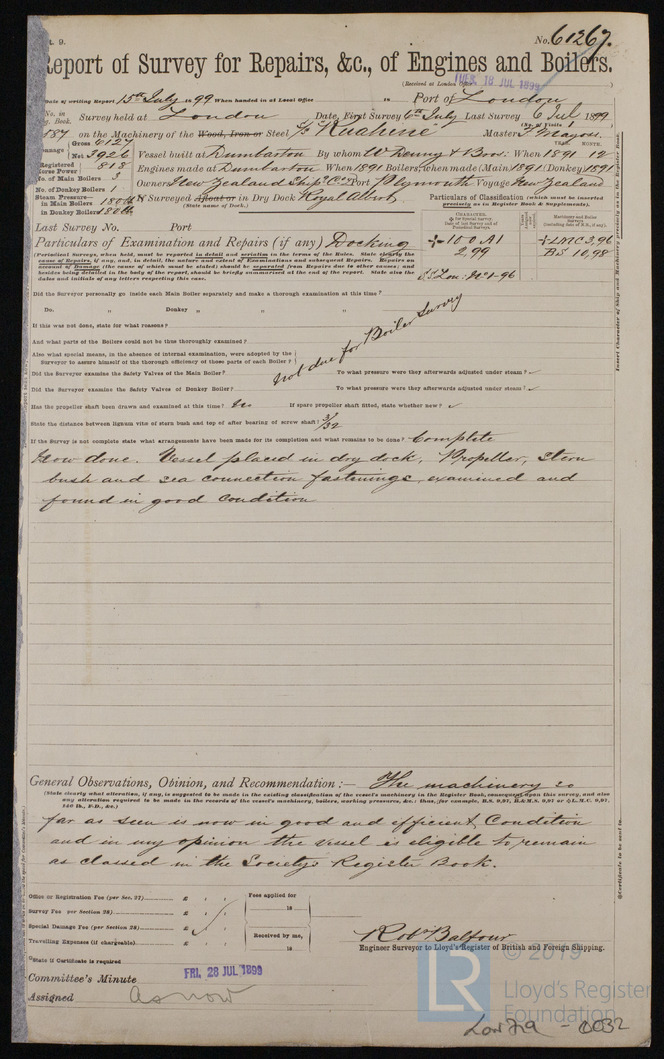 t. 9.
No. 61267.
Report of Survey for Repairs, &c., of Engines and Boilers.
(Received at London Office
TUES. 18 JUL 1899
Date of writing Report 15th July 1899 When handed in at Local Office
Port of London
No. in
Reg. Book.
Survey held at London
Date, First Survey 6th July Last Survey 6 Jul 1899
(No. of Visits 1
187 on the Machinery of the Wood, Iron or Steel
Ruahine
Master
Tonnage
Gross 6127
Net 3926
Vessel built at Dumbarton By whom W Denny & Bros: When 1891 12
YEAR. MONTH.
Registered
Horse Power 813
Engines made at Dumbarton When 1891 Boilers, when made (Main) 1891 (Donkey) 1891
No. of Main Boilers 3
No. of Donkey Boilers 1
Owners New Zealand Ship. Co Ld Port Plymouth Voyage New Zealand
Steam Pressure
in Main Boilers 180 lb
in Donkey Boilers 180 lb
If Surveyed Afloat or in Dry Dock Royal Albert
(State name of Dock.)
Particulars of Classification (which must be inserted
precisely as in Register Book & Supplements).
Last Survey No. Port
Particulars of Examination and Repairs (if any) Docking
(Periodical Surveys, when held, must be reported in detail and seriatim in the terms of the Rules. State clearly the
cause of Repairs, if any, and, in detail, the nature and extent of Examinations and subsequent Repairs. Repairs on
account of Damage (the cause of which must be stated) should be separated from Repairs due to other causes; and
besides being detailed in the body of the report, should be briefly summarised at the end of the report. State also the
dates and initials of any letters respecting this case.
CHARACTER.
Machinery and Boiler
Surveys
+ 100 A1
2,99
+ LMC 2,96
BS 10,98
S.S. Lon: No 1-96
Insert Character of Ship and Machinery precisely as in the Register Book.
Did the Surveyor personally go inside each Main Boiler separately and make a thorough examination at this time?
Do. „ Donkey „ „ „
If this was not done, state for what reasons?
And what parts of the Boilers could not be thus thoroughly examined?
Also what special means, in the absence of internal examination, were adopted by the
Surveyor to assure himself of the thorough efficiency of those parts of each Boiler?
not due for Boiler Survey
Did the Surveyor examine the Safety Valves of the Main Boiler? To what pressure were they afterwards adjusted under steam?
Did the Surveyor examine the Safety Valves of Donkey Boiler? To what pressure were they afterwards adjusted under steam?
Has the propeller shaft been drawn and examined at this time? No If spare propeller shaft fitted, state whether new?
State the distance between lignum vitæ of stern bush and top of after bearing of screw shaft? 3/32
If the Survey is not complete state what arrangements have been made for its completion and what remains to be done? Complete
Now done. Vessel placed in dry dock, Propeller, stern
bush and sea connection fastenings, examined and
found in good condition
General Observations, Opinion, and Recommendation:— The machinery so
(State clearly what alteration, if any, is suggested to be made in the existing classification of the vessel's machinery in the Register Book, consequent upon this survey, and also
any alteration required to be made in the records of the vessel's machinery, boilers, working pressures, &c.: thus, for example, B.S. 9,97, B.&M.S. 9,97 or L.M.C. 9,97,
140 lb., F.D., &c.)
far as seen is now in good and efficient Condition
and in my opinion the vessel is eligible to remain
as classed in the Society's Register Book.
Certificate to be sent to
Office or Registration Fee (per Sec. 27) £
Survey Fee per Section 28) £
Special Damage Fee (per Section 28) £
Travelling Expenses (if chargeable) £
Fees applied for
18
Received by me,
18
Robt Balfour
Engineer Surveyor to Lloyd's Register of British and Foreign Shipping.
State if Certificate is required
Committee's Minute
FRI. 28 JUL 1899
Assigned as now
LR
© 2019
Lloyd's Register
Foundation
Lon 719 - 0032